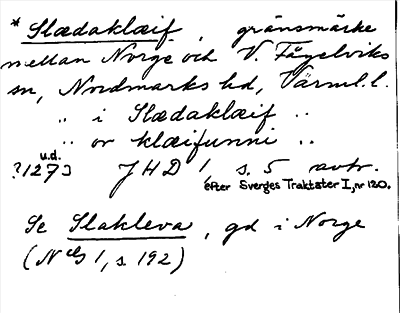 * Slædaklæif, gränsmärke
mellan Norge och V. Fågelviks
sn, Nordmarks hd, Värml. l.
„ i Slædaklæif „
„ or klæifunni „
u.d.
?1273 JHD 1, s. 5 avtr.
efter Sverges Traktater I, nr 120.
Se Slakleva, gd i Norge
(NG 1, s. 192)